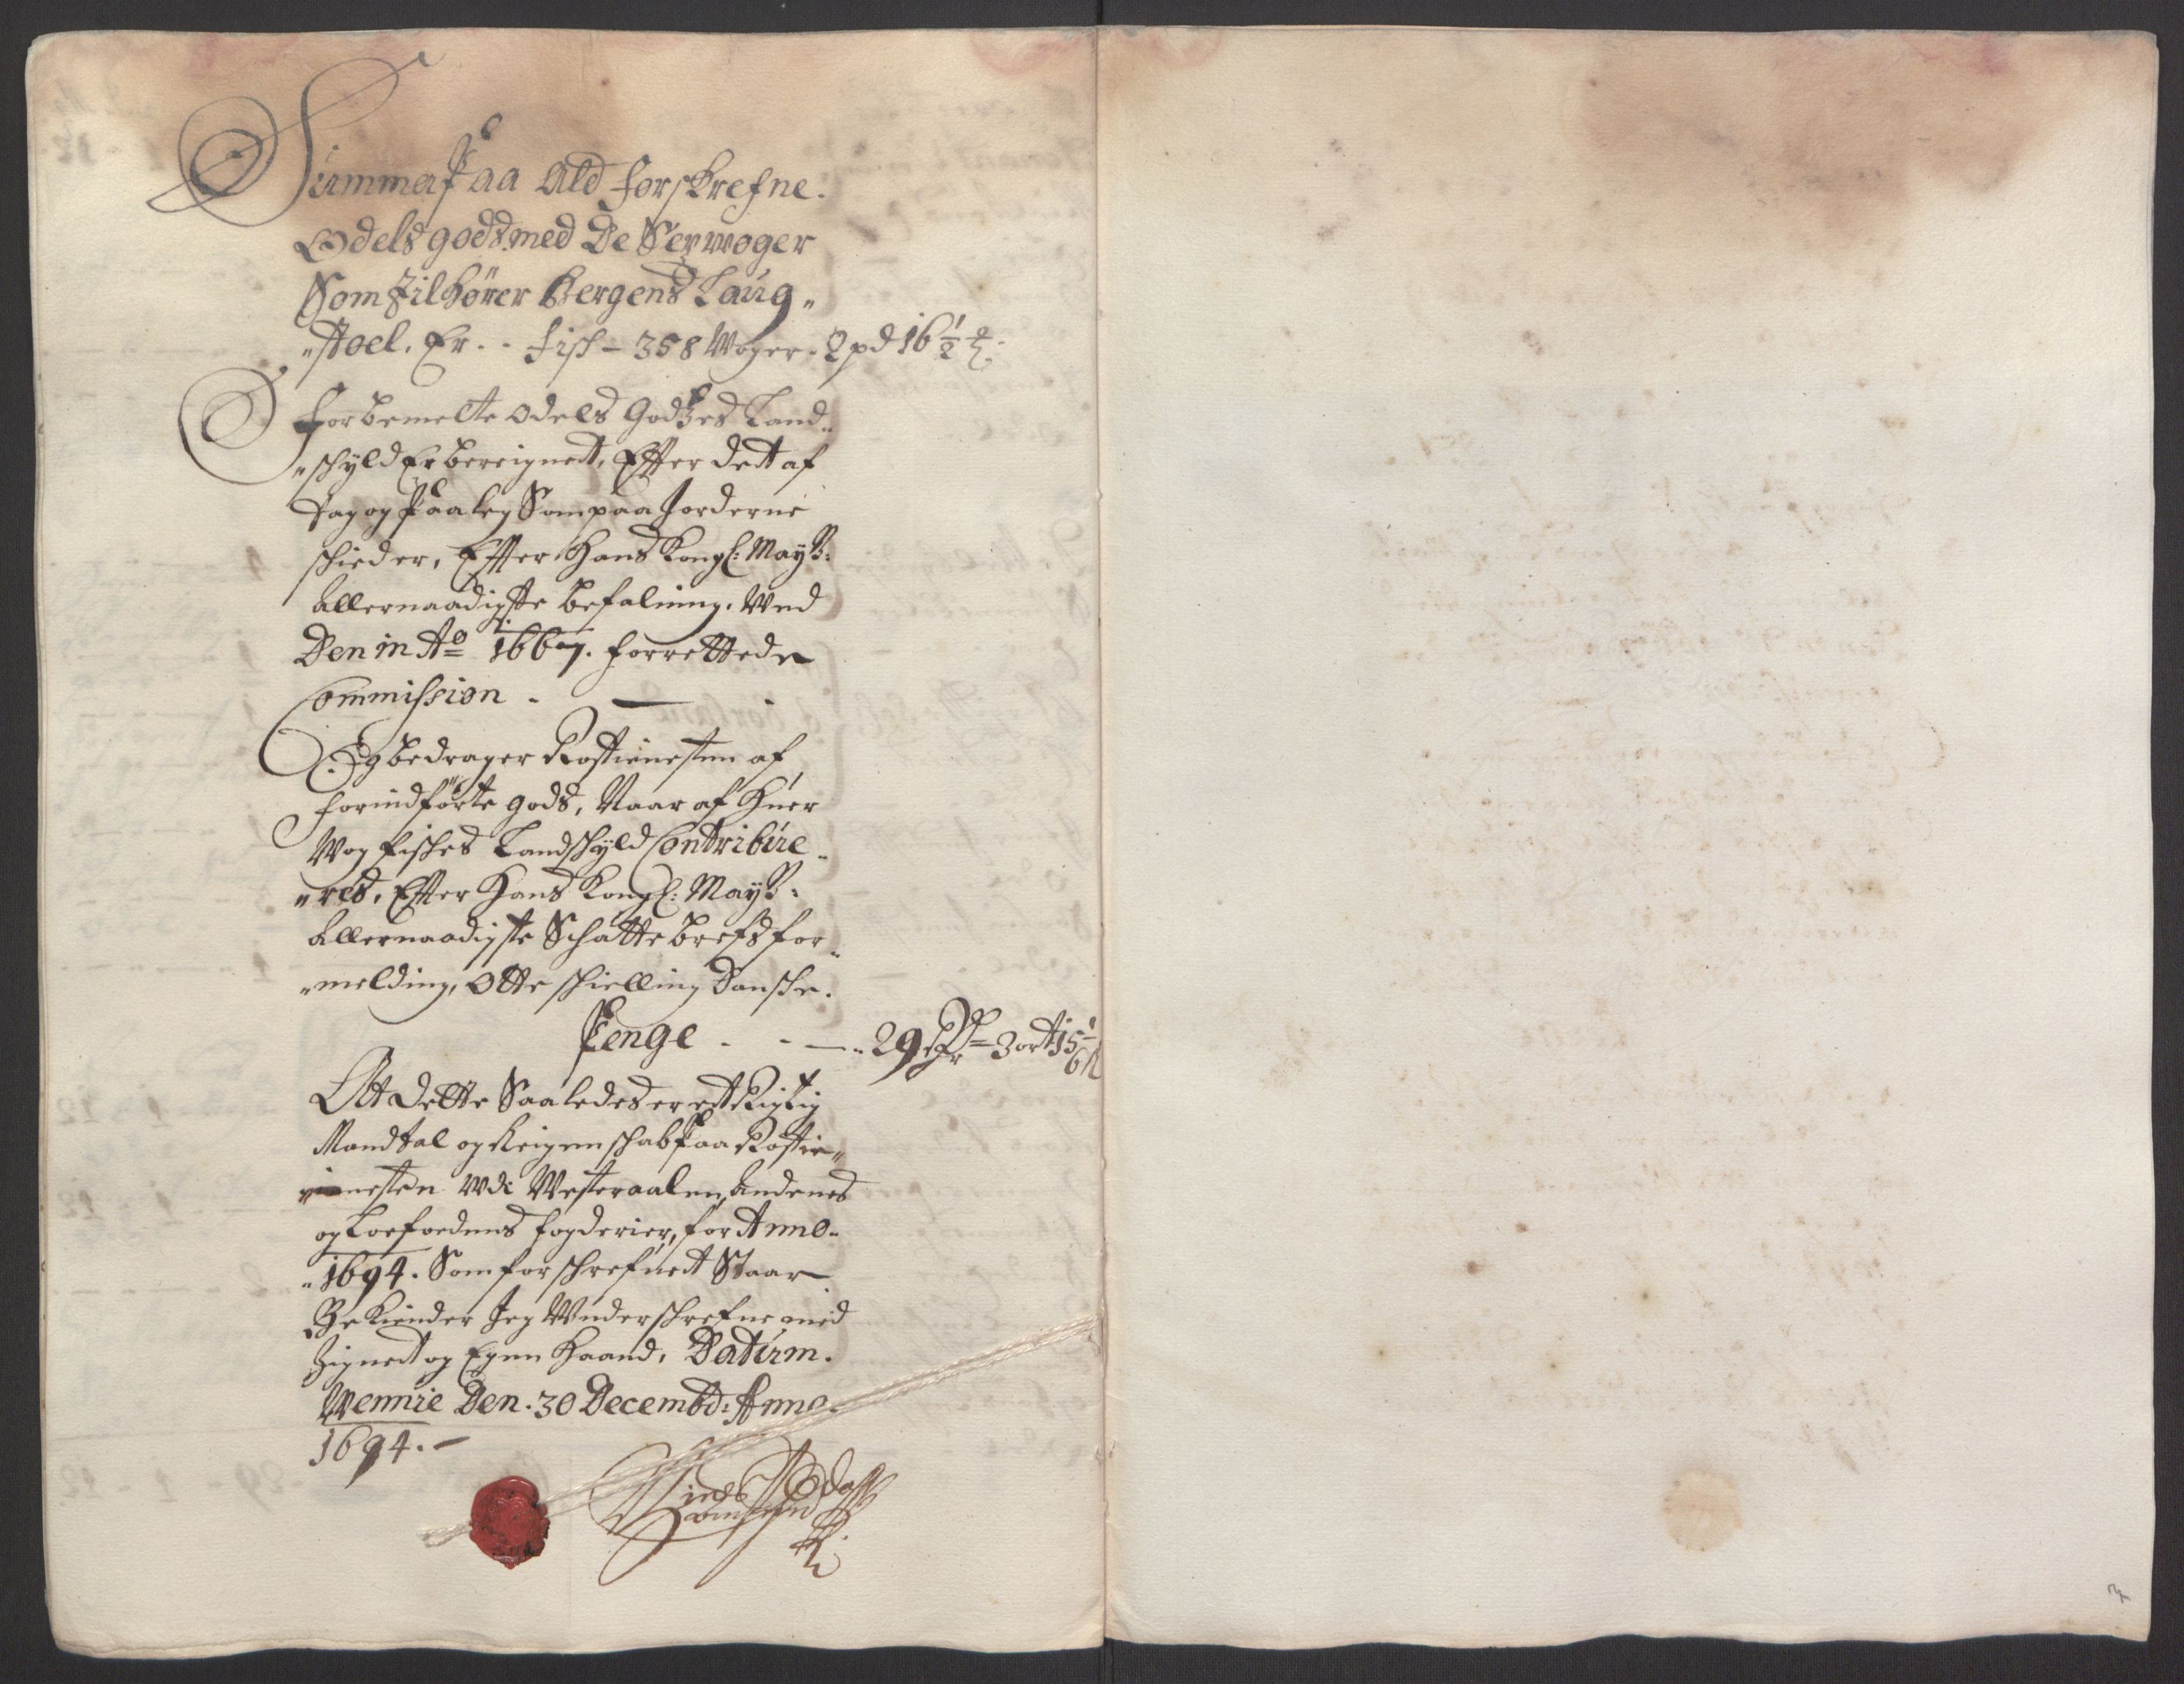 Summa Paa Ald forskrefne.
Odels gods med De 8 er woger
Som Tilhører Bergens Laug„
„stoel. Er. - fisk - 358 Woger. 2 pd 16 1/2 ℔.
forbemelte odels Godtzes Land„
„schyld Er bereignett, Effter dett af
Tag og Paaleg Som paa Jorderne
schieder, Effter Hans Kongl: Mayts:
Allernaadigste befalning. Wed
Den in Ao 1667. forrettede
Commission. —
Og bedrager Rostienesten af
forindførte gods, Naar af huer
Wog fiskes Landschyld Contribue„
„res, Effter Hans Kongl: Mayts:
Allernaadigste Schatte brefs for„
„melding, Otte schielling Danske.
Penge . - — „ 29 Rdr - 3 ort 15 1/6 ß
Att Dette Saaledes er ett Rigtig
Mandtal og Reigenschab Paa Rostie„
nesten Udi Westeraalen, Andenes
og Loefoedens fogderier, for Anno
„1694. Som forschrefuet Staar
Bekiender Jeg Underschrefne med
Zignett og Egen Haand, Datum.
Wennie Den. 30 Decembr: Anno
1694. —